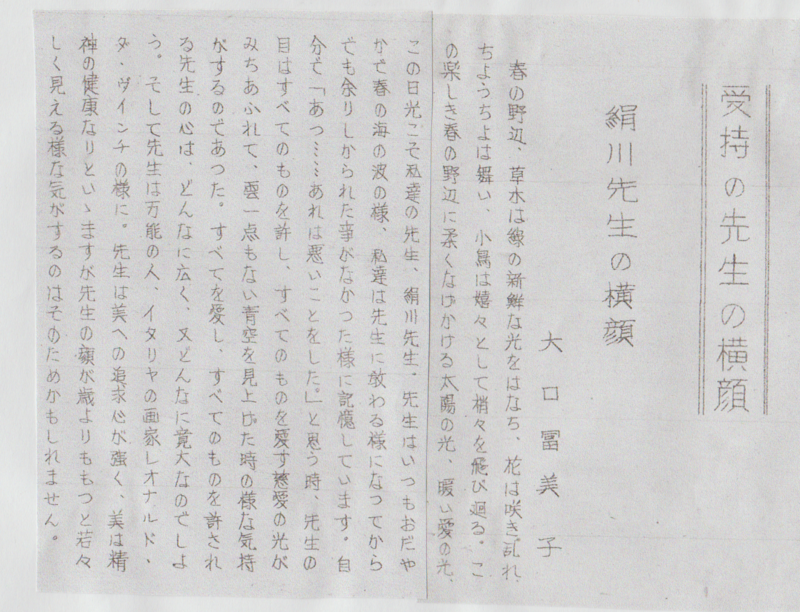 受持の先生の横顔
絹川先生の横顔
大口冨美子
春の野辺、草木は緑の新鮮な光をはなち、花は咲き乱れ
ちようちよは舞い、小鳥は嬉々として梢々を飛び廻る。こ
の楽しき春の野辺に柔くなげかける太陽の光、暖い愛の光、
この日光こそ私達の先生、絹川先生、先生はいつもおだや
かで春の海の波の様、私達は先生に教わる様になつてから
でも余りしかられた事がなかつた様に記憶しています。自
分で「あつ……あれは悪いことをした。」と思う時、先生の
目はすべてのものを許し、すべてのものを愛す慈愛の光が
みちあふれて、雲一点もない青空を見上げた時の様な気持
がするのであつた。すべてを愛し、すべてのものを許され
る先生の心は、どんなに広く、又どんなに寛大なのでしよ
う。そして先生は万能の人、イタリヤの画家レオナルド、
ダ・ヴインチの様に。先生は美への追求心が強く、美は精
神の健康なりといゝますが先生の顔が歳よりももつと若々
しく見える様な気がするのはそのためかもしれません。